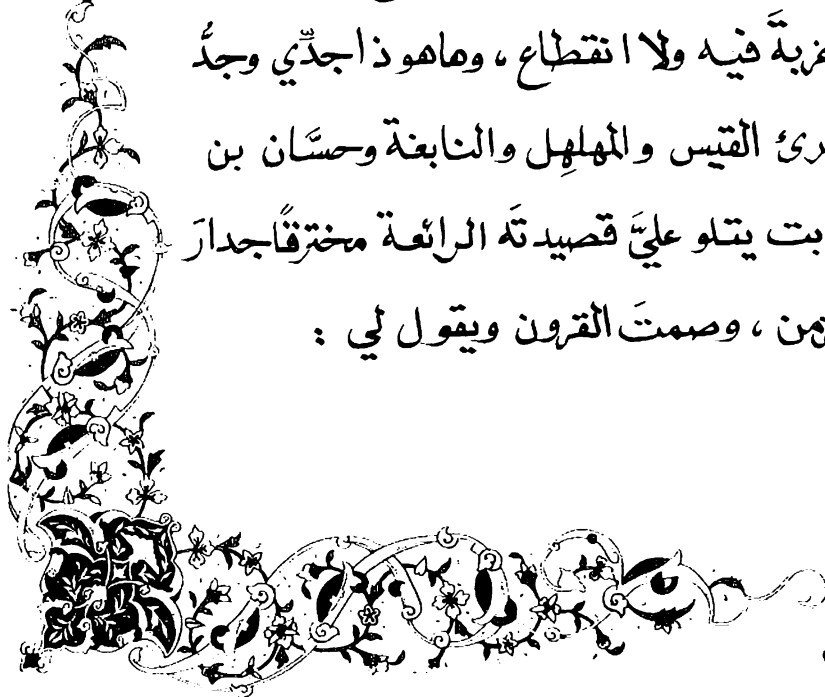 غربةَ فيه ولا انقطاع ، وهاهو ذا جدّي وجدُّ
رئ القيس والمهلهِل والنابغة وحسَّان بن
بت يتلو عليَّ قصيدتَه الرائعة مخترقًا جدارَ
زمن ، وصمتَ القرون ويقول لي :